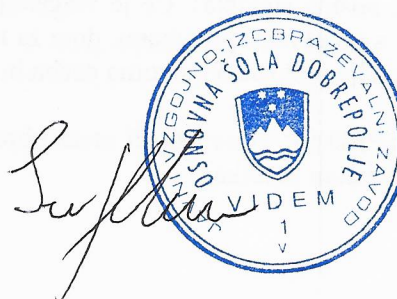 JAVNI VZGOJNO-IZOBRAŽEVALNI ZAVOD
OSNOVNA ŠOLA DOBREPOLJE
VIDEM
1
V